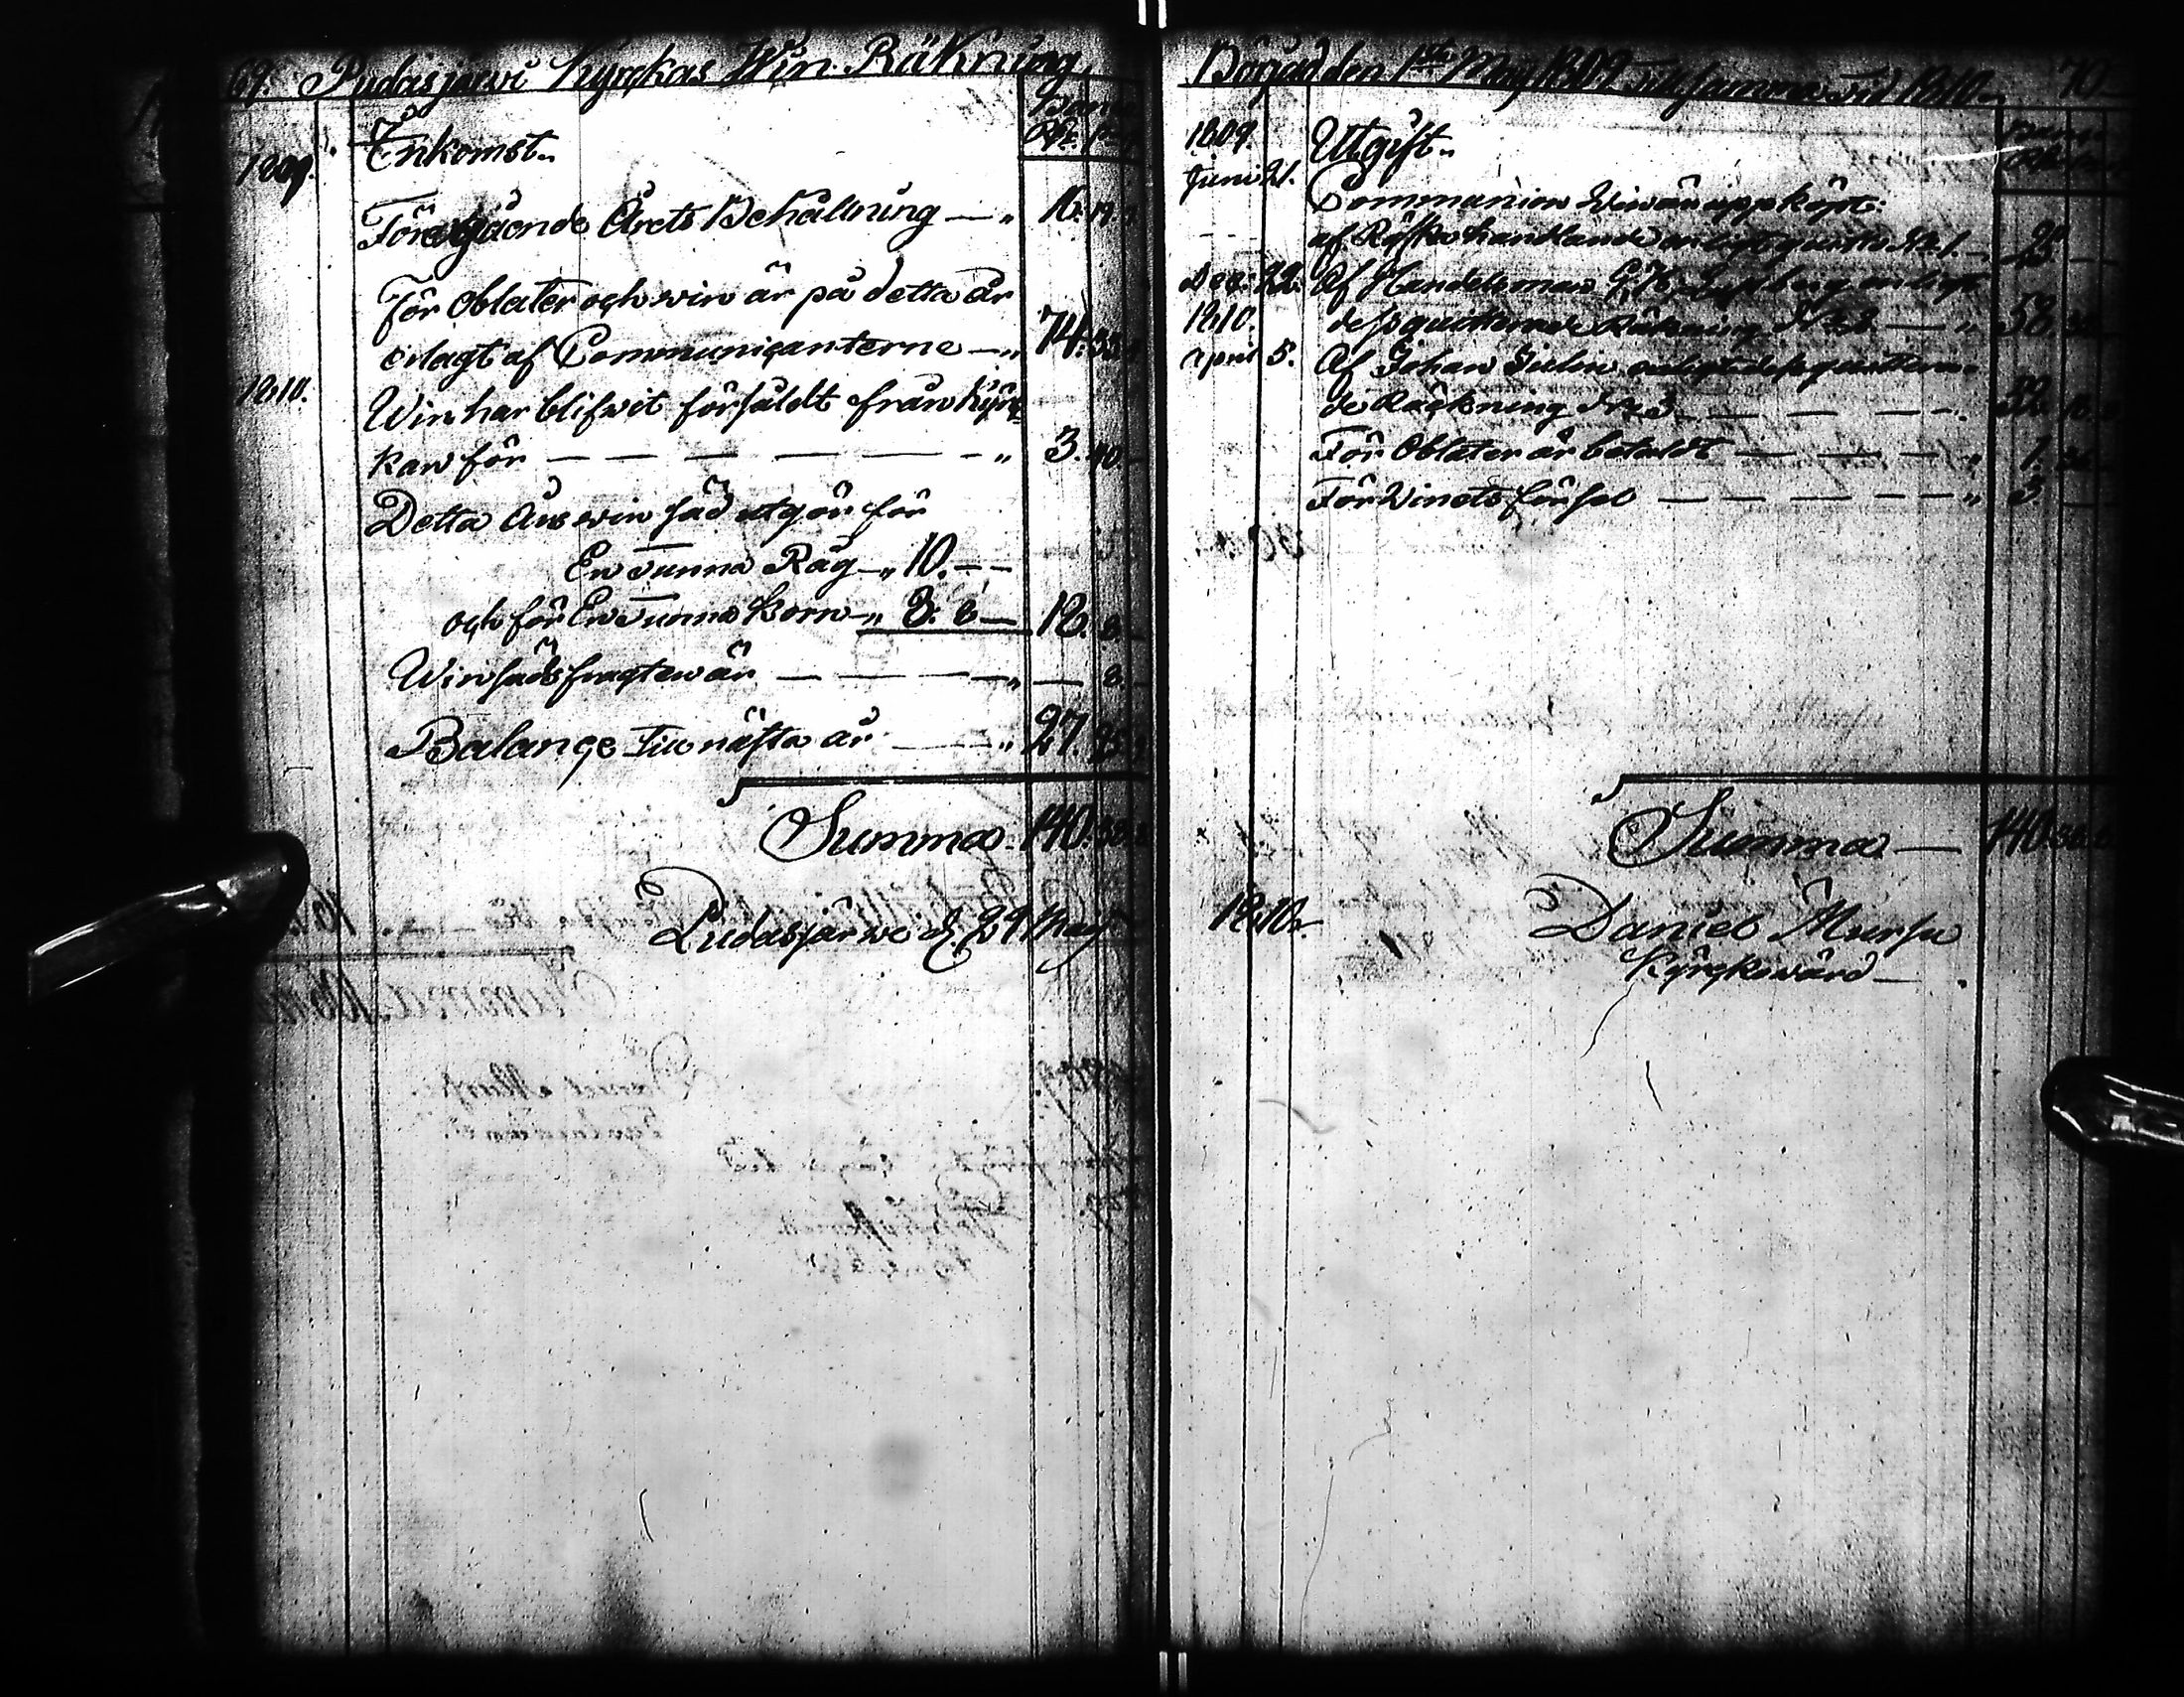 69. Pudasjärvi Kyrckas Win Räkning
1809. Inkomst.
Föregående Årets Behållning — " 16. 19.
För Oblater och win är på detta år
erlagt af Communicanterne — " 74. 33
1810. Win har blifwit försåldt från Kyrc
kan för — — — — — " 3. 40
Detta Års win säd utgör för
En Tunna Råg — " 10. — —
och för En Tunna Korn — " 8. 8 — 18. 8. —
Winsäds fragten är — — — — " — 8. —
Balance till nästa år — — " 27. 35
Summa 140. 36
Pudasjärwi d. 29 Maij
Börjad den 1ste Maij 1809 till samma tid 1810. 70
1809. Utgift.
Juni 21. Communion Winär uppköpt:
af Ryska handlande enligt quitto No 1. —
Dec: 22. Af Handelsman G. H. enligt
1810. dess quitterade Räkning — " 58.
April 5. Af Johan Julin enligt dess quittera-
de Räckning No 3 — — — — 32.
För Oblater är betaldt — — — — " 1.
För Winets försel — — — — — " 3. —
Summa — 140. 36
1810. Daniel Mursu
Kyrckowärd —